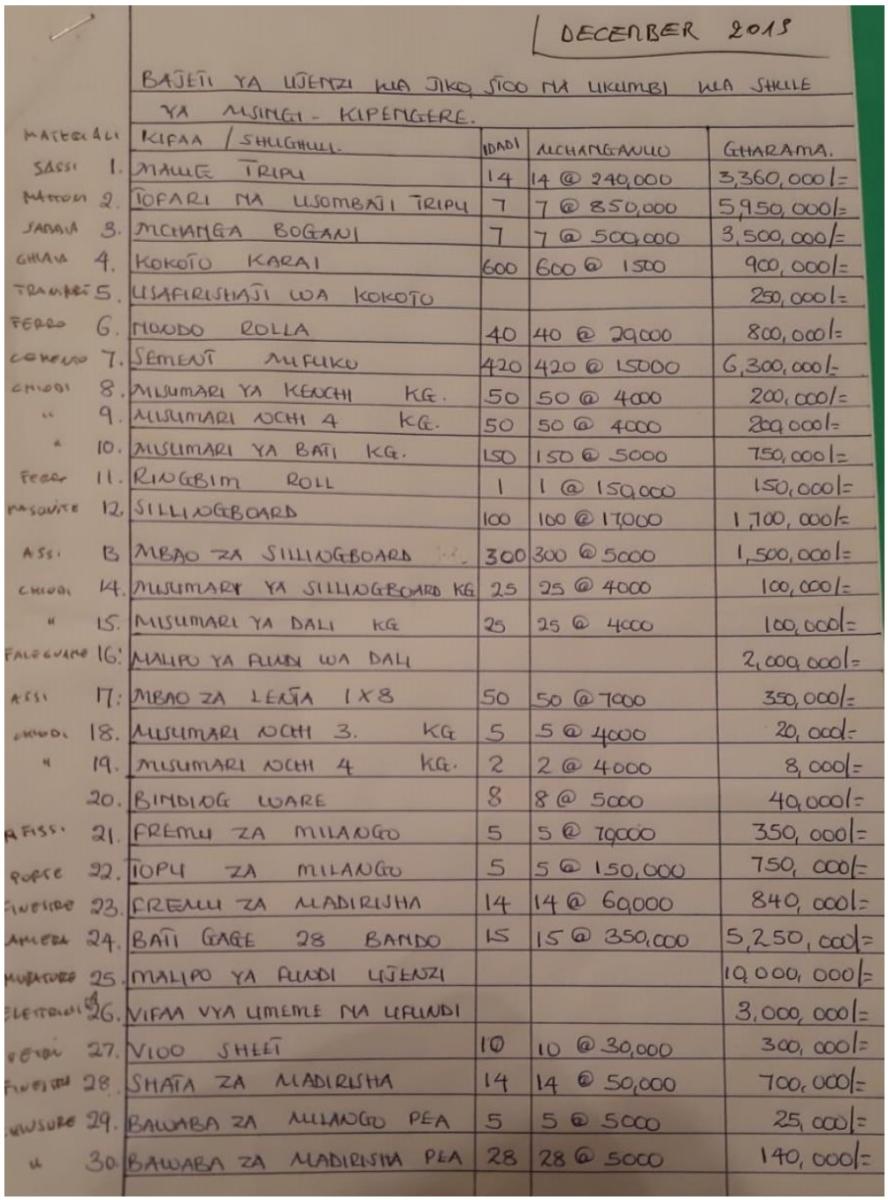 DECEMBER 2019
BAJETI YA UJENZI WA JIKO, STOO NA UKUMBI WA SHULE
YA MSINGI - KIPENGERE.
MATERIALI KIFAA / SHUGHULI. IDADI MCHANGANUO GHARAMA.
SASSI 1. MAWE TRIPU 14 14 @ 240,000 3,360,000/=
MATTONI 2. TOFARI NA USOMBAJI TRIPU 7 7 @ 850,000 5,950,000/=
SABBIA 3. MCHANGA BOGANI 7 7 @ 500,000 3,500,000/=
GHIAIA 4. KOKOTO KARAI 600 600 @ 1500 900,000/=
5. USAFIRISHAJI WA KOKOTO 250,000/=
FERRO 6. NONDO ROLLA 40 40 @ 20,000 800,000/=
CEMENTO 7. SEMENT MIFUKO 420 420 @ 15000 6,300,000/=
CHIODI 8. MISUMARI YA KENCHI KG. 50 50 @ 4000 200,000/=
" 9. MISUMARI NCHI 4 KG. 50 50 @ 4000 200,000/=
" 10. MISUMARI YA BATI KG. 150 150 @ 5000 750,000/=
FERR 11. RINGBIM ROLL 1 1 @ 150,000 150,000/=
MASONITE 12. SILLINGBOARD 100 100 @ 17,000 1,700,000/=
ASSI 13 MBAO ZA SILLINGBOARD 300 300 @ 5000 1,500,000/=
CHIODI 14. MISUMARY YA SILLINGBOARD KG 25 25 @ 4000 100,000/=
" 15. MISUMARI YA DALI KG 25 25 @ 4000 100,000/=
FALEGNAME 16. MALIPO YA FUNDI WA DALI 2,000,000/=
ASSI 17: MBAO ZA LENTA 1X8 50 50 @ 7000 350,000/=
CHIODI 18. MISUMARI NCHI 3. KG 5 5 @ 4000 20,000/=
" 19. MISUMARI NCHI 4 KG. 2 2 @ 4000 8,000/=
20. BINDING WARE 8 8 @ 5000 40,000/=
21. FREMU ZA MILANGO 5 5 @ 70,000 350,000/=
PORTE 22. TOPU ZA MILANGO 5 5 @ 150,000 750,000/=
FINESTRE 23. FREMU ZA MADIRISHA 14 14 @ 60,000 840,000/=
LAMIERA 24. BATI GAGE 28 BANDO 15 15 @ 350,000 5,250,000/=
MURATORE 25. MALIPO YA FUNDI UJENZI 10,000,000/=
26. VIFAA VYA UMEME NA UFUNDI 3,000,000/=
27. VIOO SHEET 10 10 @ 30,000 300,000/=
28. SHATA ZA MADIRISHA 14 14 @ 50,000 700,000/=
29. BAWABA ZA MILANGO PEA 5 5 @ 5000 25,000/=
" 30. BAWABA ZA MADIRISHA PEA 28 28 @ 5000 140,000/=